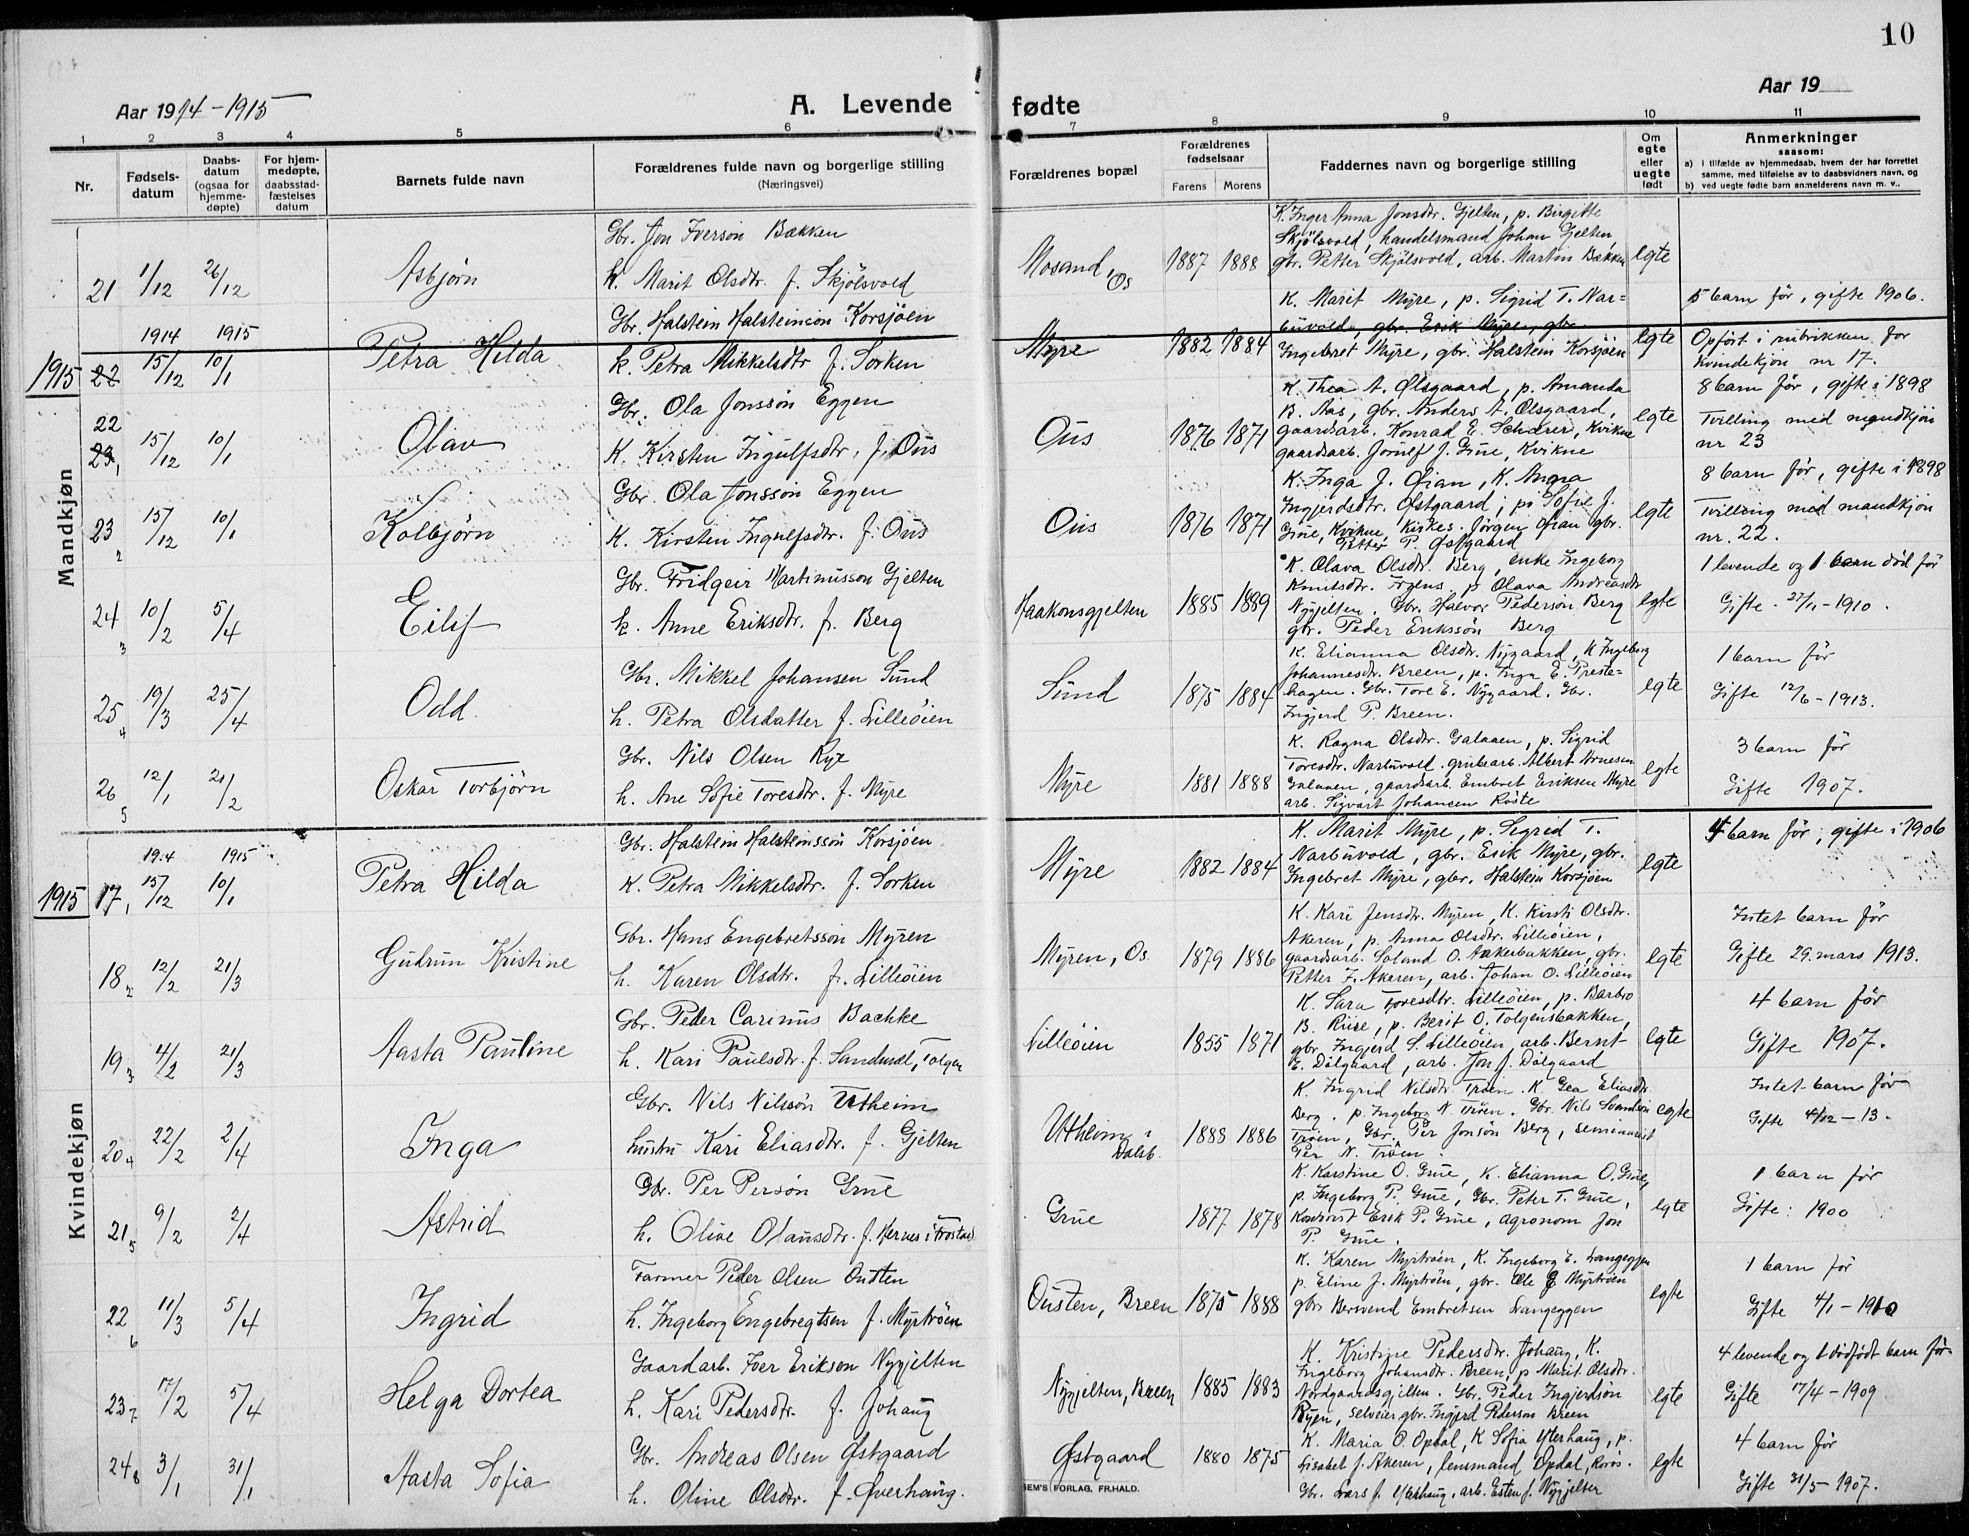 10
Aar 1914-1915
A. Levende fødte
Aar 19
1 2 3 4 5 6 7 8 9 10 11
Nr.
Fødsels-datum
Daabs-datum (ogsaa for hjemme-døpte)
For hjem-medøpte, daabsstad-fæstelses datum
Barnets fulde navn
Forældrenes fulde navn og borgerlige stilling
(Næringsvei)
Forældrenes bopæl
Forældrenes fødselsaar
Farens Morens
Faddernes navn og borgerlige stilling
Om egte eller uegte født
Anmerkninger
saasom:
a) i tilfælde av hjemmedaab, hvem der har forrettet samme, med tilføielse av to daabsvidners navn, og
b) ved uegte fødte barn anmelderens navn m. v..
Mandkjøn
21 1/12 26/12 Asbjørn
Gbr. Jon Iverson Bækken
k. Marit Olsdtr. f. Skjölsvold
Mosand, Os 1887 1888
K. Inger Anna Jonsdtr. Gjelten, p. Birgitte
Skjölsvold, handelsmand Johan Gjelten,
gbr. Petter Skjölsvold, arb. Martin Bækken
egte
1915 22 1914 15/12 1915 10/1 Petra Hilda
Gbr. Halstein Halsteinson Korsjøen
k. Petra Mikkelsdtr f. Sorken
Myre 1882 1884
K. Marit Myre, p. Sigrid T. Nar=
buvold, gbr. Erik Myre, gbr.
Ingebret Myre, gbr. Halstein Korsjöen
egte
5 barn för, gifte 1906.
Opfört i rubrikken for
kvindekjön nr 17.
22 23, 1 15/12 10/1 Olav
Gbr. Ola Jonssön Eggen
K. Kirsten Ingulfsdtr, f. Ous
Ous 1876 1871
K. Thea A. Olsgaard, p. Amanda
B. Aas, gbr. Anders A. Olsgaard,
gaardsarb. Konrad E. Schærer, Kvikne
gaardsarb. Jörulf J. Grue, Kvikne
egte
8 barn för, gifte i 1898
Tvilling med mandkjön
nr 23
23 2 15/12 10/1 Kolbjörn
Gbr. Ola Jonssön Eggen
K. Kirsten Ingulfsdtr. f. Ous
Ous 1876 1871
K. Inga J. Öian, K. Angra
Ingjerdsdtr. Østgaard, pi Sofie J.
Grue, Kvikne, Kirkes. Jörgen Öian gbr.
Petter P. Østgaard
egte
8 barn för, gifte i 1898
Tvilling med mandkjön
nr. 22.
24 3 10/2 5/4 Eilif
Gbr. Fridgeir Martinusson Gjelten
k. Anne Eriksdtr. f. Berg
Haakonsgjelten 1885 1889
K. Olava Olsdtr. Berg, enke Ingeborg
Knutsdtr. p. Olava Andreasdtr
Nygjelten. Gbr. Halvor Pedersön Berg
gbr. Peder Erikssön Berg
egte
1 levende og 1 barn död för
Gifte 27/11-1910.
25 4 19/3 25/4 Odd
Gbr. Mikkel Johansen Sund
h. Petra Olsdatter f. Lilleöien
Sund 1875 1884
K. Elianna Olsdtr. Nygaard, K Ingeborg
Johannesdtr. Breen, p. Inga E. Preste=
hagen. Gbr. Tore E. Nygaard. Gbr.
Ingjerd P. Breen.
egte
1 barn för
Gifte 12/6-1913.
26 5 12/1 21/2 Oskar Torbjörn
Gbr. Nils Olsen Rye
h. Ane Sofie Toresdtr. f. Myre
Myre 1881 1888
K. Ragna Olsdtr. Galaaen, p. Sigrid
Toresdtr. Narbuvold. grubearb. Albert Arnesen
Galaaen, gaardsarb. Embret Eriksen Myre
arb. Sigvart Johansen Röste
egte
3 barn för
Gifte 1907.
Kvindekjøn
1915 17 1 1914 15/12 1915 10/1 Petra Hilda
Gbr. Halstein Halsteinssön Korsjöen
K. Petra Mikkelsdtr. f. Sorken
Myre 1882 1884
K. Marit Myre, p. Sigrid T.
Narbuvold, gbr. Erik Myre, gbr.
Ingebret Myre, gbr. Halstein Korsjöen
egte
4 barn för, gifte i 1906
18 2 12/2 21/3 Gudrun Kristine
Gbr. Hans Engebretssön Myren
h. Karen Olsdtr. f. Lilleöien
Myren, Os 1879 1886
K. Kari Jensdtr. Myren, K. Kirsti Olsdtr.
Akeren, p. Anna Olsdtr. Lilleöien,
gaardsarb. O. Aakerbakken, gbr.
Petter J. Akeren, arb. Johan O. Lilleöien
egte
Intet barn för
Gifte 29. mars 1913.
19 3 4/2 21/3 Aasta Pauline
Gbr. Peder Carinus Bachke
h. Kari Paulsdtr. f. Sandmæl, Tolgen
Lilleöien 1855 1871
K. Sara Toresdtr. Lilleöien, p. Barbro
B. Riise, p. Berit O. Tolgensbakken,
gbr. Ingjerd S. Lilleöien, arb. Bernt
E. Dölgaard, arb. Jon J. Dölgaard
egte
4 barn för
Gifte 1907.
20 4 22/2 2/4 Inga
Gbr. Nils Nilssön Utheim
hustru Kari Eliasdtr. f. Gjelten
Utheim i Dalsb. 1888 1886
K. Ingrid Nilsdtr Tröen. K Gea Eliasdtr.
Berg. p. Ingeborg N. Tröen. Gbr. Nils
Tröen, Gbr. Per Jonsön Berg, seminarist
Per N. Tröen.
egte
Intet barn för
Gifte 4/12-13.
21 5 9/2 2/4 Astrid
Gbr. Per Persön Grue
h. Olive Olausdtr. f. Hernes i Frostad
Grue 1877 1878
K. Karstine O. Grue, K. Elianna O. Grue,
p. Ingeborg P. Grue, Gbr. Peter T. Grue,
Kontorist Erik P. Grue, agronom Jon
P. Grue.
egte
1 barn för
Gifte: 1900
22 6 11/3 5/4 Ingrid
Farmer Peder Olsen Ousten
h. Ingeborg Engebregtsen f. Myrtröen
Ousten, Breen 1875 1888
K. Karen Myrtröen, K. Ingeborg E. Langeggen
p. Eline J. Myrtröen, gbr. Ole E Myrtröen
gbr. Bersvend Embretsen Langeggen
egte
1 barn för
Gifte 4/1-1910
23 7 17/2 5/4 Helga Dortea
Gaardarb. Iver Erikson Nygjelten
h. Kari Pedersdtr. f. Johaug
Nygjelten, Breen 1885 1883
K. Kristine Pedersdtr. Johaug, K.
Ingeborg Johansdtr. Breen, p Marit Olsdtr.
Nordgaardsgjelten. Gbr. Peder Ingjerdsön
Ryen, selveier gbr. Ingjerd Pederson Breen
egte
4 levende og 1 dödfödt barn för
Gifte 17/4-1909
24 8 3/1 31/1 Aasta Sofia
Gbr. Andreas Olsen Østgaard
h. Oline Olsdtr. f. Øverhaug.
Østgaard 1880 1875
K. Maria O. Opdal, K Sofia Ytterhaug, p.
Lisabet J. Akeren, lensmand Opdal, Röros.
Gbr. Lars J. Ytterhaug, arb. Esten J. Nygjelten
egte
4 barn för
Gifte 31/5-1907.
SEM'S FORLAG, FR.HALD.